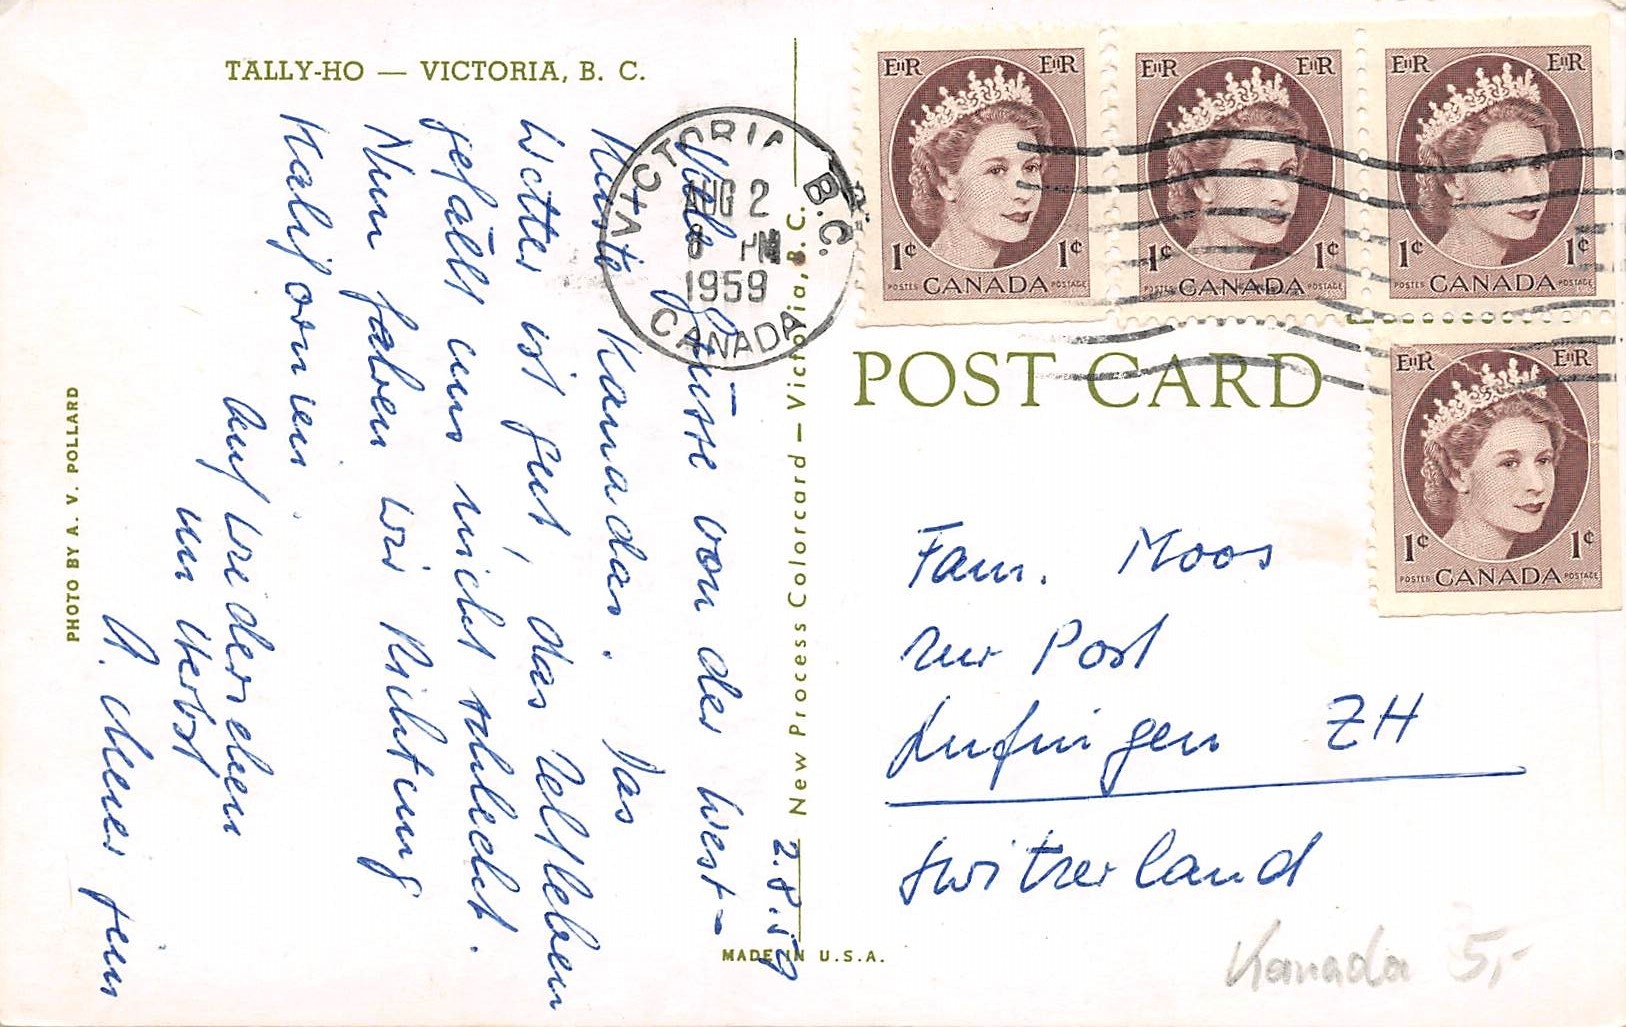 TALLY-HO — VICTORIA, B. C.
2.8.59
Viele Grüsse von der West-
küste Kanadas. Das
Wetter ist gut, das Zeltleben
gefällt uns nicht schlecht.
Nun fahren wir Richtung
Kalifornien
Auf Wiedersehen
im Herbst
PHOTO BY A. V. POLLARD
New Process Colorcard — Victoria, B.C.
MADE IN U.S.A.
VICTORIA B.C.
AUG 2
8 PM
1959
CANADA
EIIR EIIR
1¢ 1¢
POSTES CANADA POSTAGE
EIIR EIIR
1¢ 1¢
POSTES CANADA POSTAGE
EIIR EIIR
1¢ 1¢
POSTES CANADA POSTAGE
EIIR EIIR
1¢ 1¢
POSTES CANADA POSTAGE
POST CARD
Fam. Moos
zur Post
Lufingen ZH
Switzerland
Kanada 5,-